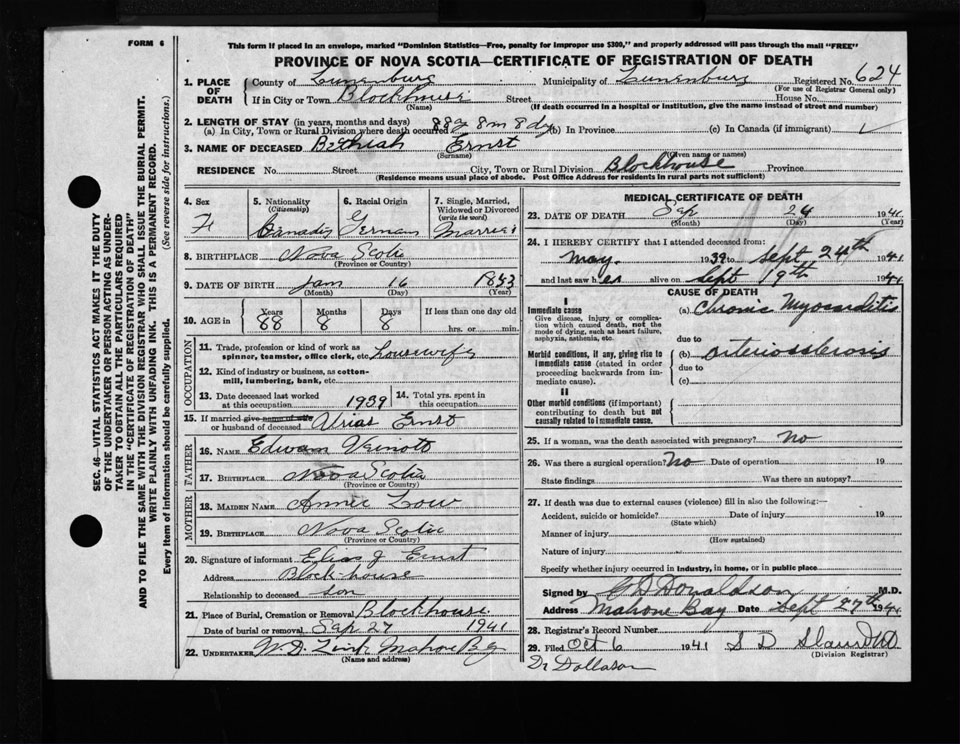 FORM 6
This form if placed in an envelope, marked "Dominion Statistics—Free, penalty for improper use $300," and properly addressed will pass through the mail "FREE"
PROVINCE OF NOVA SCOTIA—CERTIFICATE OF REGISTRATION OF DEATH
1. PLACE OF DEATH
County of Lunenburg Municipality of Lunenburg Registered No. 624
(For use of Registrar General only)
If in City or Town Blockhouse Street House No.
(Name) (If death occurred in a hospital or institution, give the name instead of street and number)
2. LENGTH OF STAY (in years, months and days)
(a) In City, Town or Rural Division where death occurred 88y 8m 8dy (b) In Province (c) In Canada (if immigrant)
3. NAME OF DECEASED Bethiah Ernst
(Surname) (Given name or names)
RESIDENCE No. Street City, Town or Rural Division Blockhouse Province
(Residence means usual place of abode. Post Office Address for residents in rural parts not sufficient)
4. Sex
F
5. Nationality
(Citizenship)
6. Racial Origin
German
7. Single, Married, Widowed or Divorced
(write the word)
Married
8. BIRTHPLACE Nova Scotia
(Province or Country)
9. DATE OF BIRTH Jan 16
(Month) (Day) (Year)
10. AGE in Years Months Days If less than one day old
88 8 8 hrs. or min.
OCCUPATION
11. Trade, profession or kind of work as spinner, teamster, office clerk, etc. housewife
12. Kind of industry or business, as cotton-mill, lumbering, bank, etc.
13. Date deceased last worked at this occupation 1939
14. Total yrs. spent in this occupation
15. If married give name of wife or husband of deceased Urias Ernst
FATHER
16. NAME Edward Veinott
17. BIRTHPLACE Nova Scotia
(Province or Country)
MOTHER
18. MAIDEN NAME Annie
19. BIRTHPLACE Nova Scotia
(Province or Country)
20. Signature of informant Elias J Ernst
Address Block-house
Relationship to deceased son
21. Place of Burial, Cremation or Removal Blockhouse
Date of burial or removal Sep 27 1941
22. UNDERTAKER W. D. Zink Mahone Bay
(Name and address)
MEDICAL CERTIFICATE OF DEATH
23. DATE OF DEATH Sep 24 1941
(Month) (Day) (Year)
24. I HEREBY CERTIFY that I attended deceased from:
May. 1939 to Sept. 24th 1941
and last saw her alive on Sept 19th 1941
CAUSE OF DEATH
I
Immediate cause
Give disease, injury or complication which caused death, not the mode of dying, such as heart failure, asphyxia, asthenia, etc.
(a) Chronic Myocarditis
due to
Morbid conditions, if any, giving rise to immediate cause (stated in order proceeding backwards from immediate cause).
(b) arteriosclerosis
due to
(c)
II
Other morbid conditions (if important) contributing to death but not causally related to immediate cause.
25. If a woman, was the death associated with pregnancy? No
26. Was there a surgical operation? No Date of operation 19
State findings Was there an autopsy?
27. If death was due to external causes (violence) fill in also the following:—
Accident, suicide or homicide? Date of injury 19
(State which)
Manner of injury
(How sustained)
Nature of injury
Specify whether injury occurred in industry, in home, or in public place
Signed by Donaldson M.D.
Address Mahone Bay Date Sept 27th 1941
28. Registrar's Record Number
29. Filed Oct 6 1941 S D
(Division Registrar)
SEC. 46—VITAL STATISTICS ACT MAKES IT THE DUTY
OF THE UNDERTAKER OR PERSON ACTING AS UNDERTAKER TO OBTAIN ALL THE PARTICULARS REQUIRED
IN THE "CERTIFICATE OF REGISTRATION OF DEATH"
AND TO FILE THE SAME WITH THE DIVISION REGISTRAR WHO SHALL ISSUE THE BURIAL PERMIT.
WRITE PLAINLY WITH UNFADING INK. THIS IS A PERMANENT RECORD.
Every item of information should be carefully supplied. (See reverse side for instructions.)